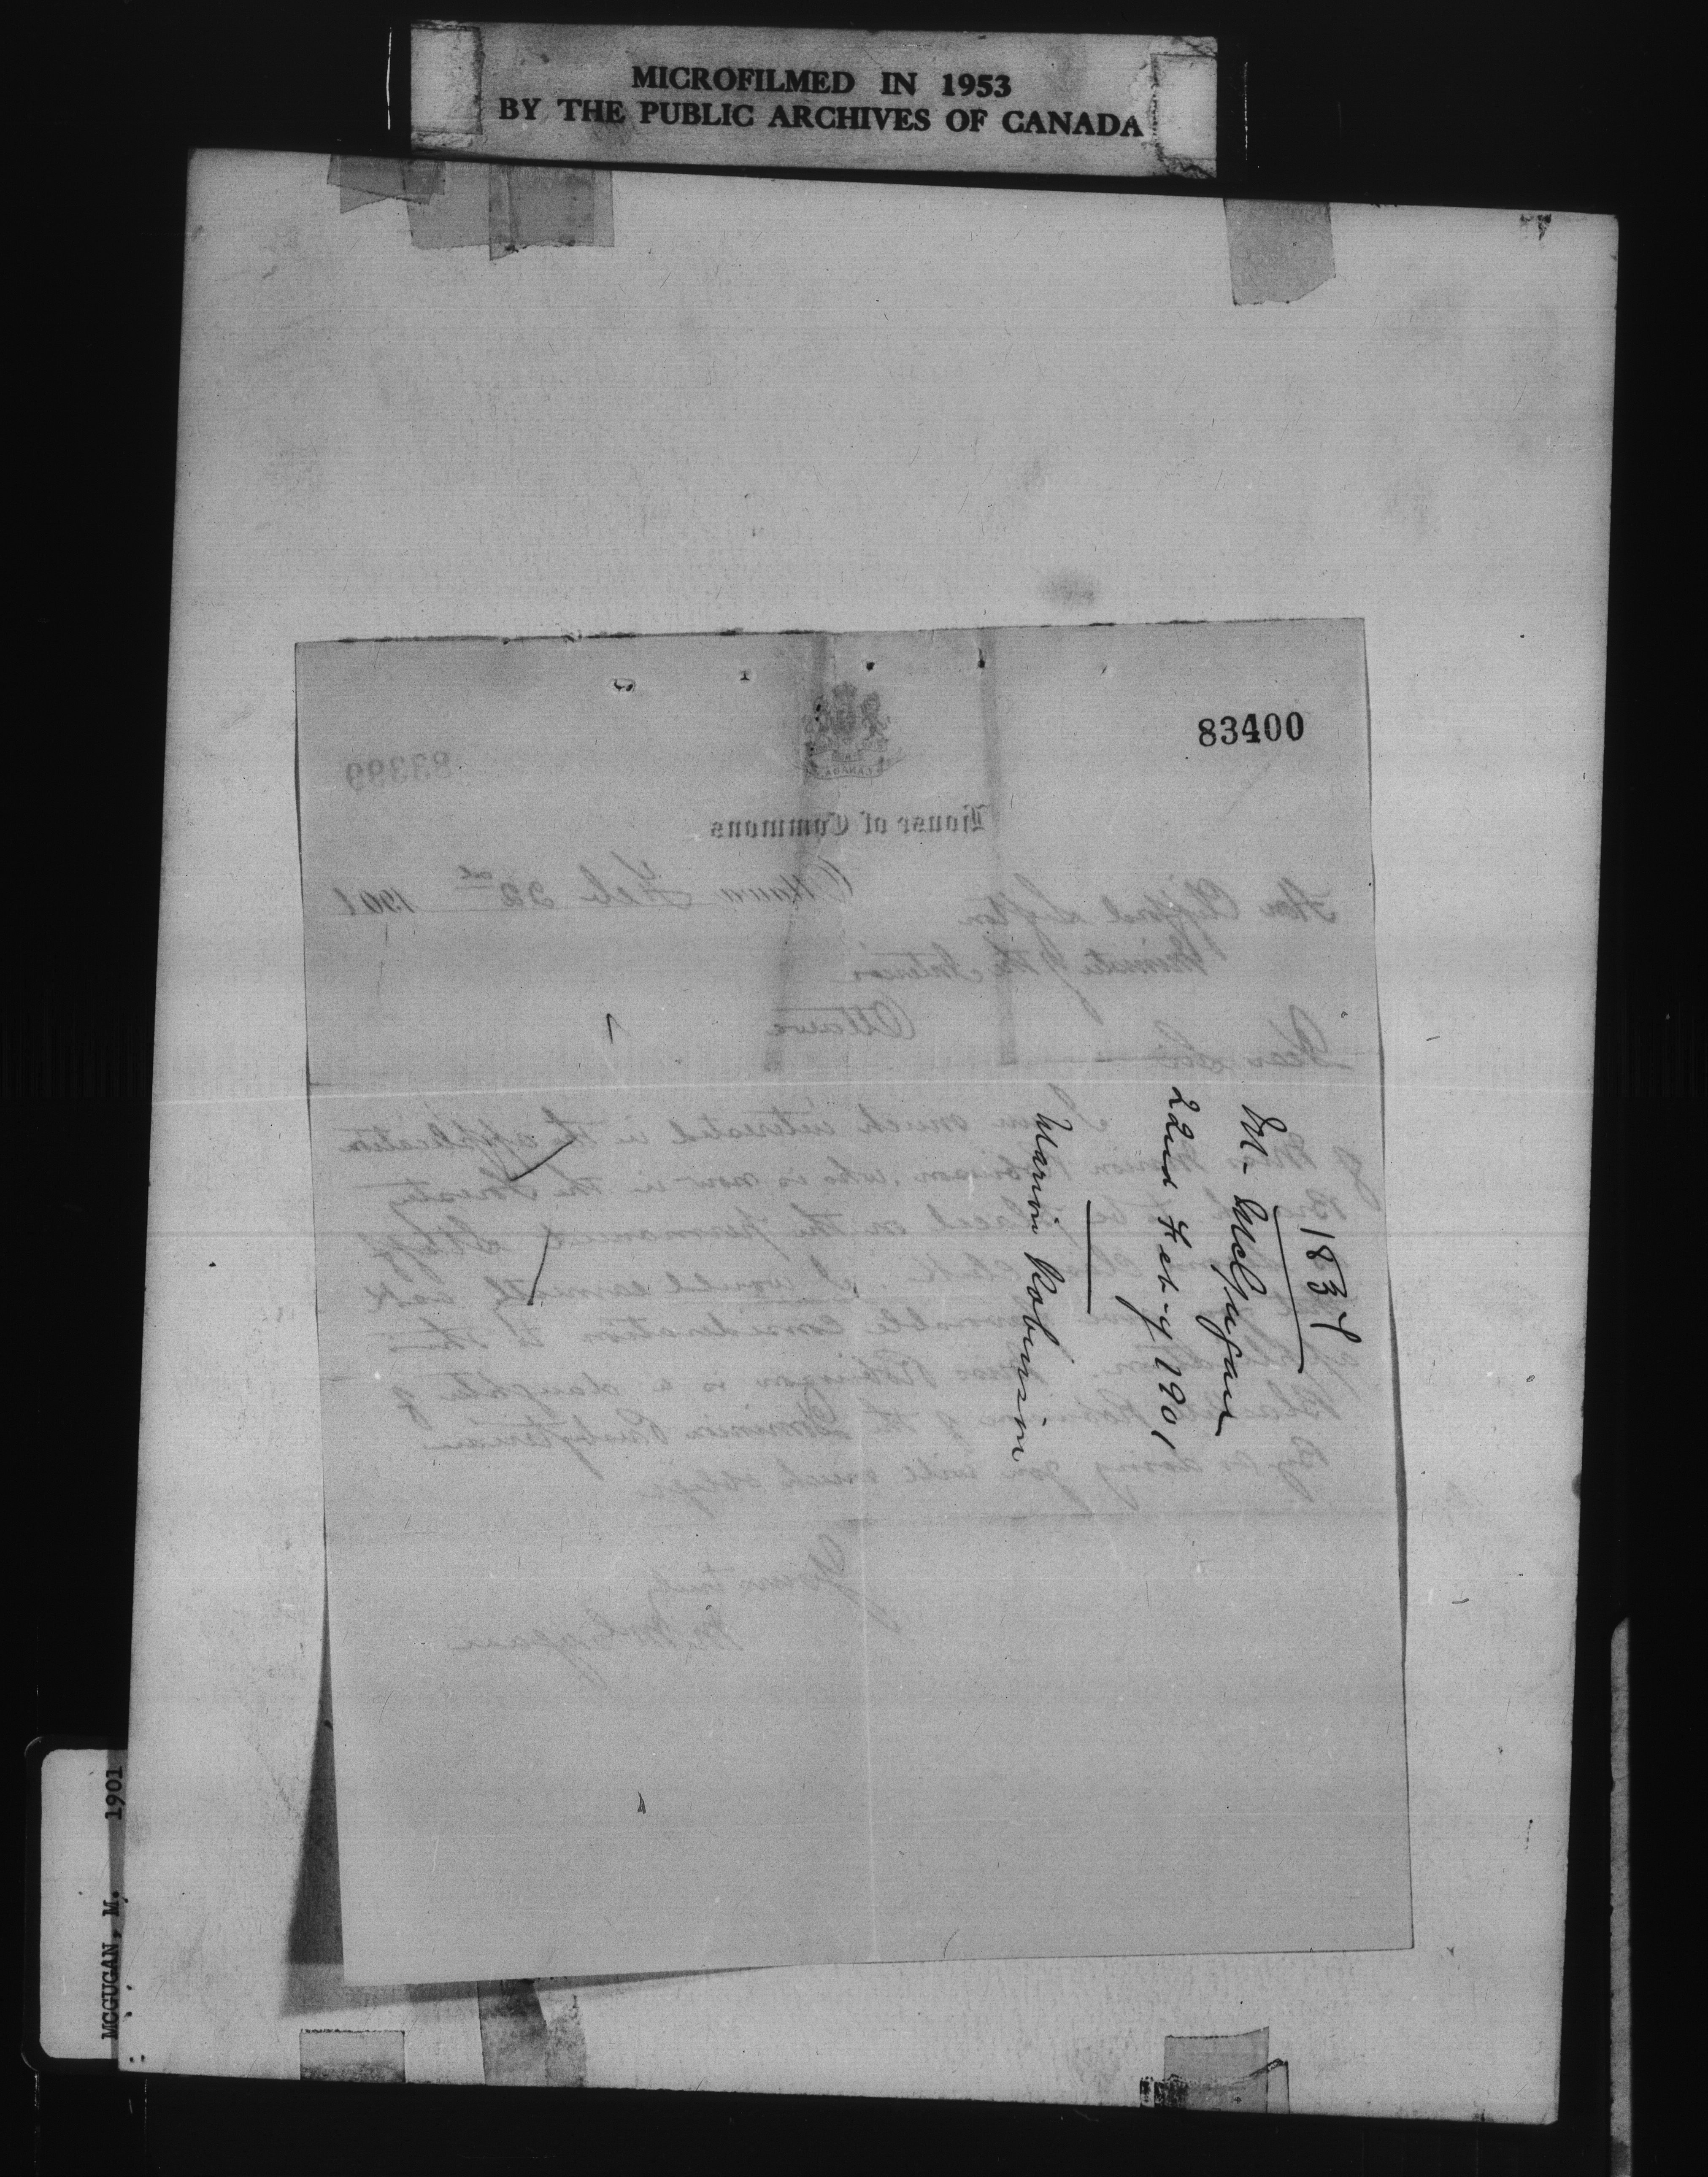 MICROFILMED IN 1953
BY THE PUBLIC ARCHIVES OF CANADA
83400
83399
CANADA
House of Commons
Ottawa Feb 22nd 1901
Hon Clifford Sifton
Minister of the Interior
Ottawa
Dear Sir
I am much interested in the application
of Miss Marion Robinson, who is now in the Forestry
Branch to be placed on the permanent Staff
class clerk. I would earnestly ask
favorable consideration to this
application. Miss Robinson is a daughter of
Blackett Robinson of the Dominion Presbyterian
By so doing you will much oblige
Yours truly
M McGugan
1837
M. McGugan
22nd Feb-y 1901
Marion Robinson
MCGUGAN, M. 1901